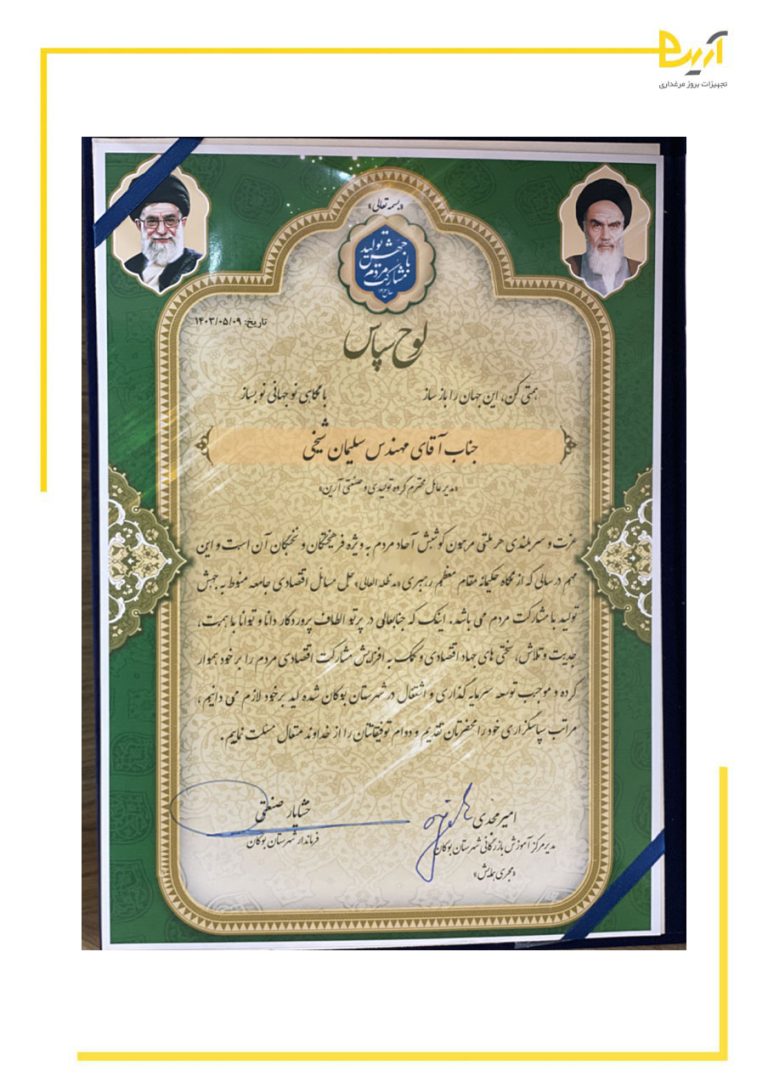 آرین
تجهیزات بروز مرغداری
«بسمه تعالی»
جهش تولید
با
مشارکت مردم
تاریخ: ۱۴۰۳/۰۵/۰۹
لوح سپاس
همتی کن، این جهان را باز ساز با نگاهی نو جهانی نو بساز
جناب آقای مهندس سلیمان شیخی
«مدیر عامل محترم گروه تولیدی و صنعتی آرین»
عزت و سربلندی هر ملتی مرهون کوشش آحاد مردم به ویژه فرهیختگان و نخبگان آن است و این
مهم در سالی که از نگاه حکیمانه مقام معظم رهبری (مدظله العالی) حل مسائل اقتصادی جامعه منوط به جهش
تولید با مشارکت مردم می باشد. اینک که جنابعالی در پرتو الطاف پروردگار دانا و توانا با همت،
جدیت و تلاش، سختی های جهاد اقتصادی و کمک به افزایش مشارکت اقتصادی مردم را بر خود هموار
کرده و موجب توسعه سرمایه گذاری و اشتغال در شهرستان بوکان شده اید بر خود لازم می دانیم،
مراتب سپاسگزاری خود را محضرتان تقدیم و دوام توفیقاتتان را از خداوند متعال مسئلت نماییم.
امیر محمدی
مدیر مرکز آموزش بازرگانی شهرستان بوکان
«مجری همایش»
خشایار صنعتی
فرماندار شهرستان بوکان